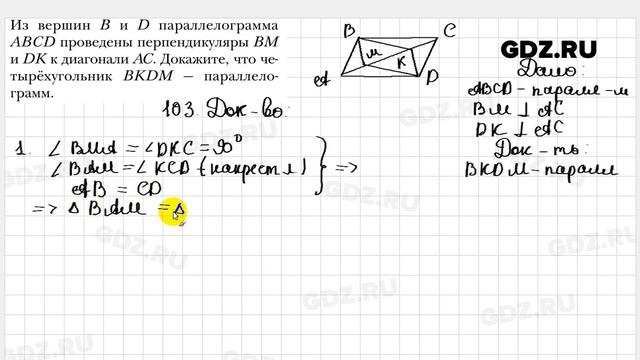 Из вершин B и D параллелограмма
ABCD проведены перпендикуляры BM
и DK к диагонали AC. Докажите, что че-
тырёхугольник BKDM – параллело-
грамм.
B
C
M
K
A
D
GDZ.RU
Дано:
ABCD - паралл-м
BM ⊥ AC
DK ⊥ AC
Док-ть:
BKDM - паралл
103. Док-во:
1. ∠ BMA = ∠ DKC = 90°
∠ BAM = ∠ KCD - (накрест л)
AB = CD
} =>
=> △ BAM = △